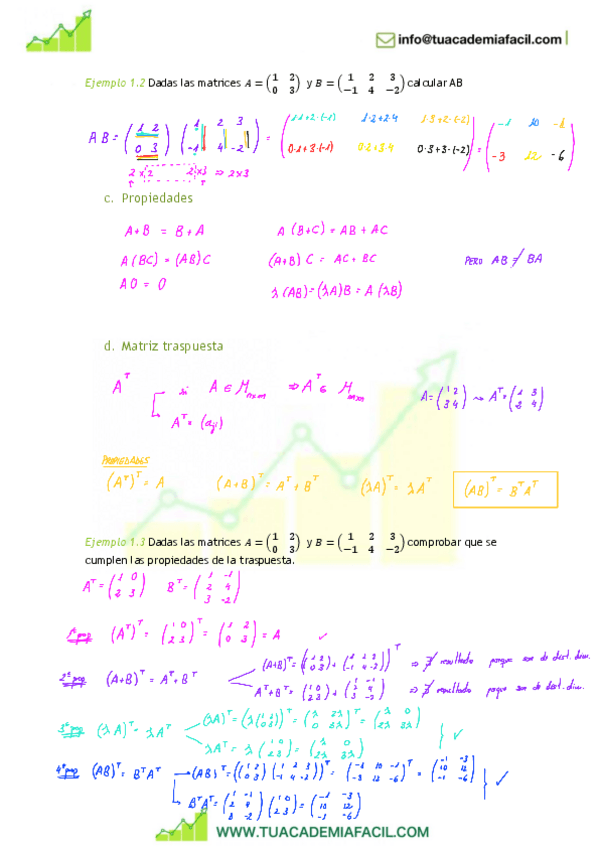 info@tuacademiafacil.com
Ejemplo 1.2 Dadas las matrices A = (1 2; 0 3) y B = (1 2 3; −1 4 −2) calcular AB
AB = (1 2; 0 3) (1 2 3; -1 4 -2) = (1·1+2·(-1) 1·2+2·4 1·3+2·(-2); 0·1+3·(-1) 0·2+3·4 0·3+3·(-2)) = (-1 10 -1; -3 12 -6)
2×2 2×3 ⇒ 2×3
c. Propiedades
A+B = B+A A(B+C) = AB + AC
A(BC) = (AB)C (A+B)C = AC + BC PERO AB ≠ BA
A0 = 0 λ(AB) = (λA)B = A(λB)
d. Matriz traspuesta
Aᵀ si A ∈ Mₙₓₘ ⇒ Aᵀ ∈ Mₘₓₙ A = (1 2; 3 4) ⇝ Aᵀ = (1 3; 2 4)
Aᵀ = (aⱼᵢ)
PROPIEDADES
(Aᵀ)ᵀ = A (A+B)ᵀ = Aᵀ + Bᵀ (λA)ᵀ = λAᵀ (AB)ᵀ = BᵀAᵀ
Ejemplo 1.3 Dadas las matrices A = (1 2; 0 3) y B = (1 2 3; −1 4 −2) comprobar que se
cumplen las propiedades de la traspuesta.
Aᵀ = (1 0; 2 3) Bᵀ = (1 -1; 2 4; 3 -2)
1ª prop (Aᵀ)ᵀ = (1 0; 2 3)ᵀ = (1 2; 0 3) = A ✓
2ª prop (A+B)ᵀ = Aᵀ + Bᵀ (A+B)ᵀ = ((1 2; 0 3) + (1 2 3; -1 4 -2))ᵀ ⇒ ∄ resultado porque son de dist. dim.
Aᵀ + Bᵀ = (1 0; 2 3) + (1 -1; 2 4; 3 -2) ⇒ ∄ resultado porque son de dist. dim.
3ª prop (λA)ᵀ = λAᵀ (λA)ᵀ = (λ(1 2; 0 3))ᵀ = (λ 2λ; 0 3λ)ᵀ = (λ 0; 2λ 3λ)
λAᵀ = λ(1 0; 2 3) = (λ 0; 2λ 3λ) ✓
4ª prop (AB)ᵀ = BᵀAᵀ (AB)ᵀ = ((1 2; 0 3)(1 2 3; -1 4 -2))ᵀ = (-1 10 -1; -3 12 -6)ᵀ = (-1 -3; 10 12; -1 -6)
BᵀAᵀ = (1 -1; 2 4; 3 -2)(1 0; 2 3) = (-1 -3; 10 12; -1 -6) ✓
WWW.TUACADEMIAFACIL.COM